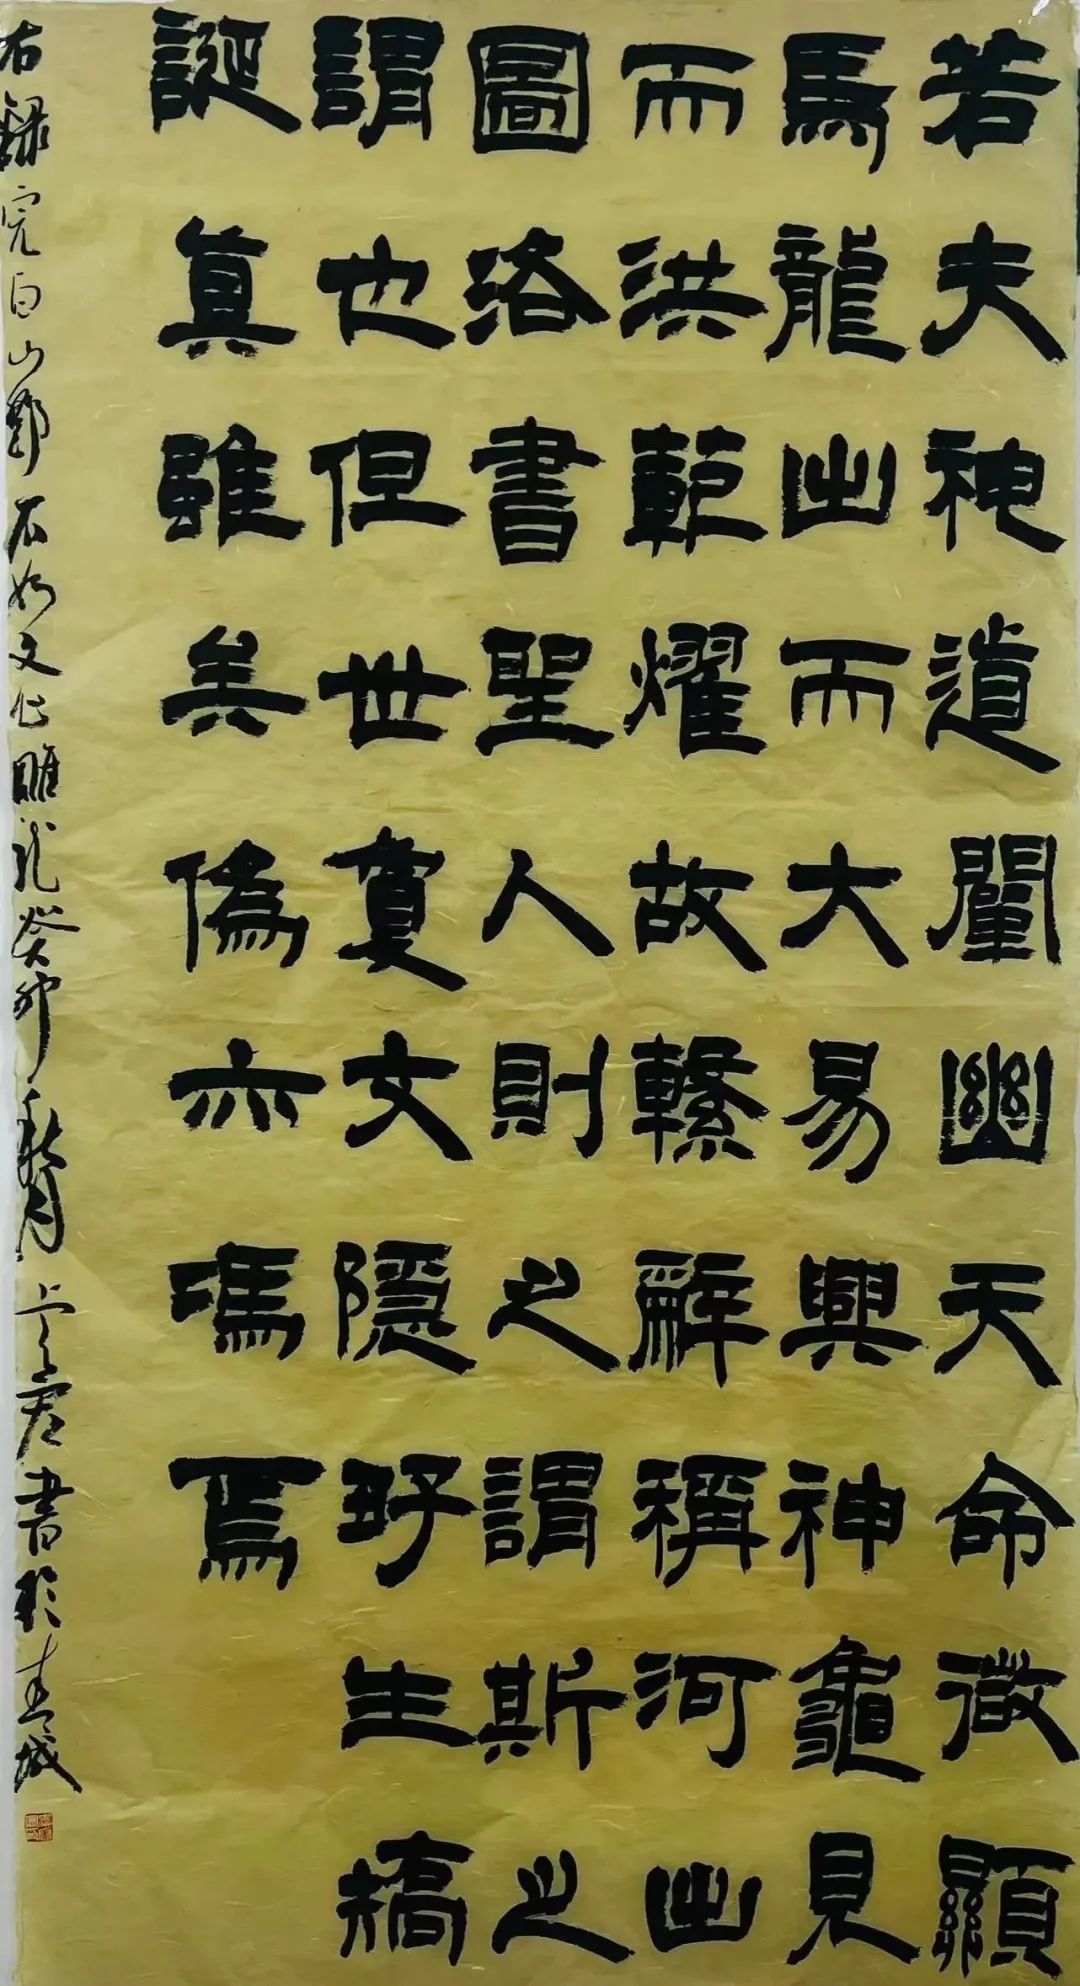 若夫神道闡幽天命微顯
馬龍出而大易興神龜見
而洪範耀故繫辭稱河出
圖洛書聖人則之謂斯之
謂也但世敻文隱好生矯
誕真雖矣偽亦嗎焉
右録完白山鄧石如文心雕龍癸卯秋月上官君書於春城